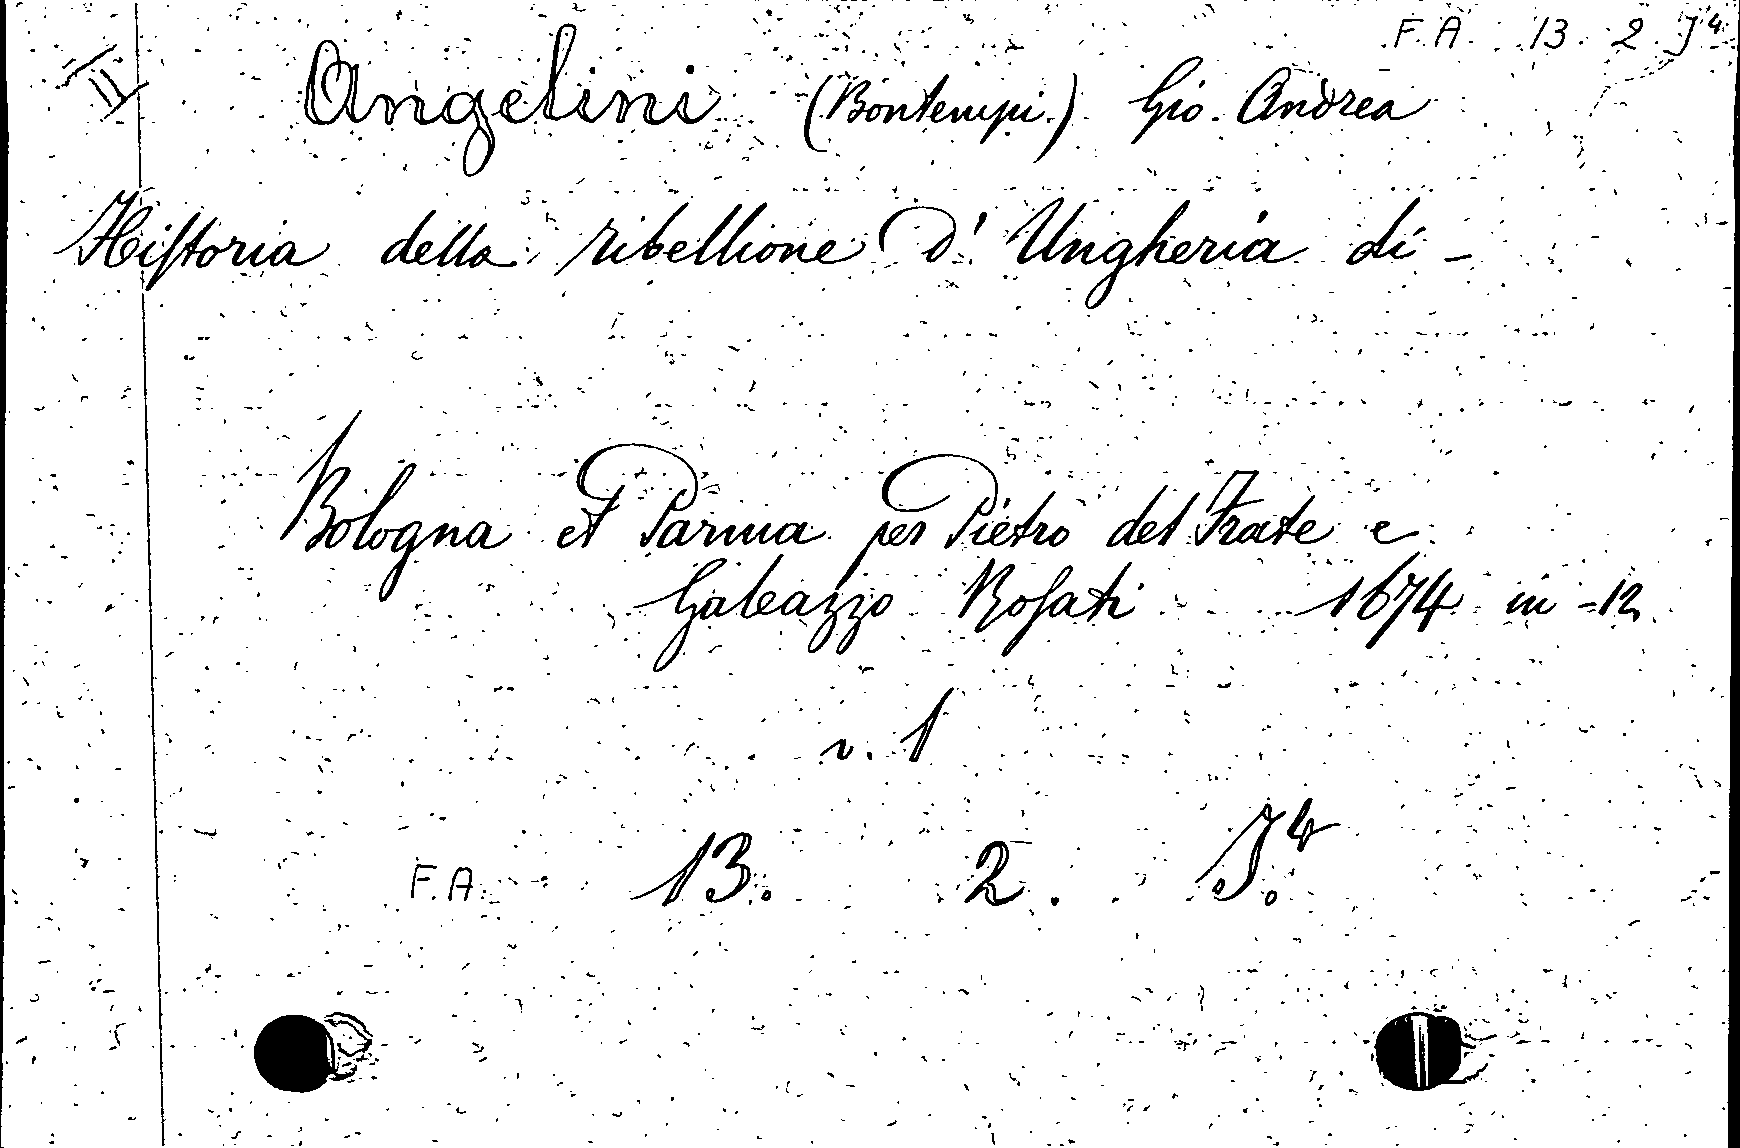 F. A. 13. 2 J⁴
II Angelini (Bontempi) Gio. Andrea
Hiſtoria della ribellione d' Ungheria di -
Bologna et Parma per Pietro del Frate e
Galeazzo Roſati 1674 in -12
v. 1
F. A. 13. 2. J.⁴